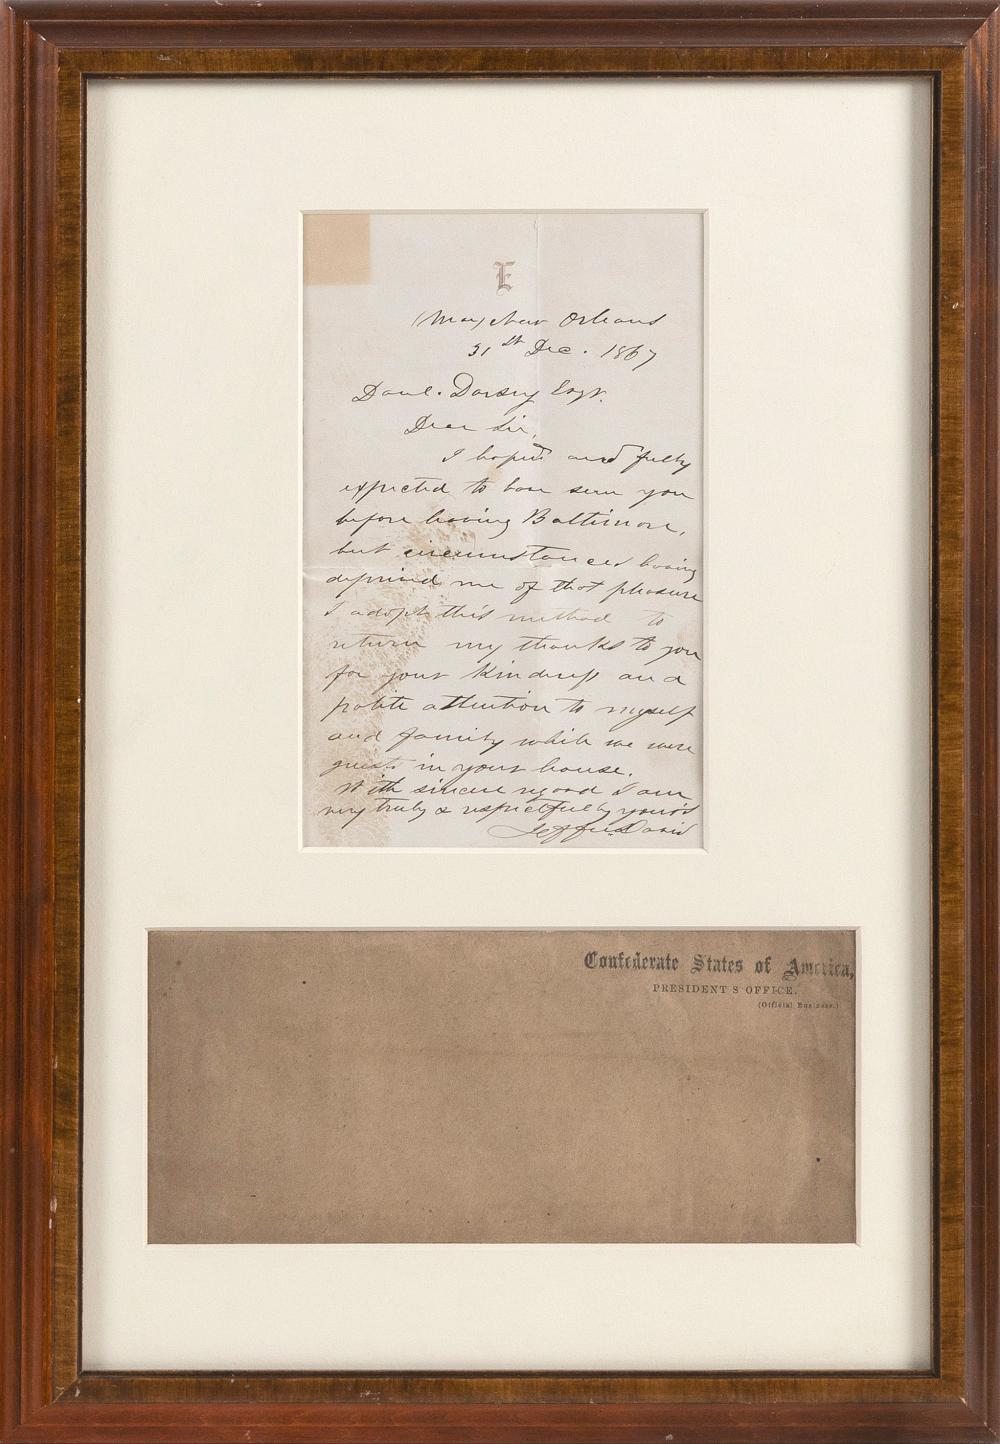 E
New Orleans
31st Dec. 1867
Danl. Dorsey Esqr.
Dear Sir,
I hoped and fully
expected to have seen you
before leaving Baltimore,
but circumstances having
deprived me of that pleasure
I adopt this method to
return my thanks to you
for your kindness and
polite attention to myself
and family while we were
guests in your house.
With sincere regard I am
very truly & respectfully yours
Jeffn. Davis
Confederate States of America,
PRESIDENT'S OFFICE.
(Official Business.)